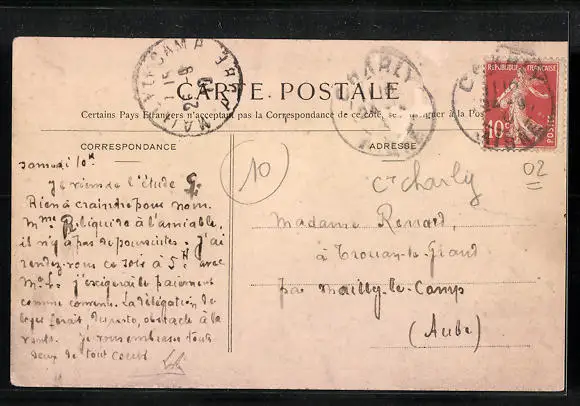 CARTE POSTALE
Certains Pays Etrangers n'acceptant pas la Correspondance de ce côté, se renseigner à la Poste
CORRESPONDANCE
ADRESSE
MAILLY-LE-CAMP
CHARLY
REPUBLIQUE FRANÇAISE
10c
POSTES
10
02
Samedi 10h
Je viens de l'étude G.
Rien à craindre pour nous.
Mme R. liquide à l'amiable,
il n'y a pas de poursuites. J'ai
rendez-vous ce soir à 5h avec
M. L. j'exigerai le paiement
comme convenu. La délégation de
loyer ferait, du reste, obstacle à la
vente. Je vous embrasse tous
deux de tout coeur
Cn Charly
Madame Renard,
à Trouan-le-Grand
par Mailly-le-Camp
(Aube)